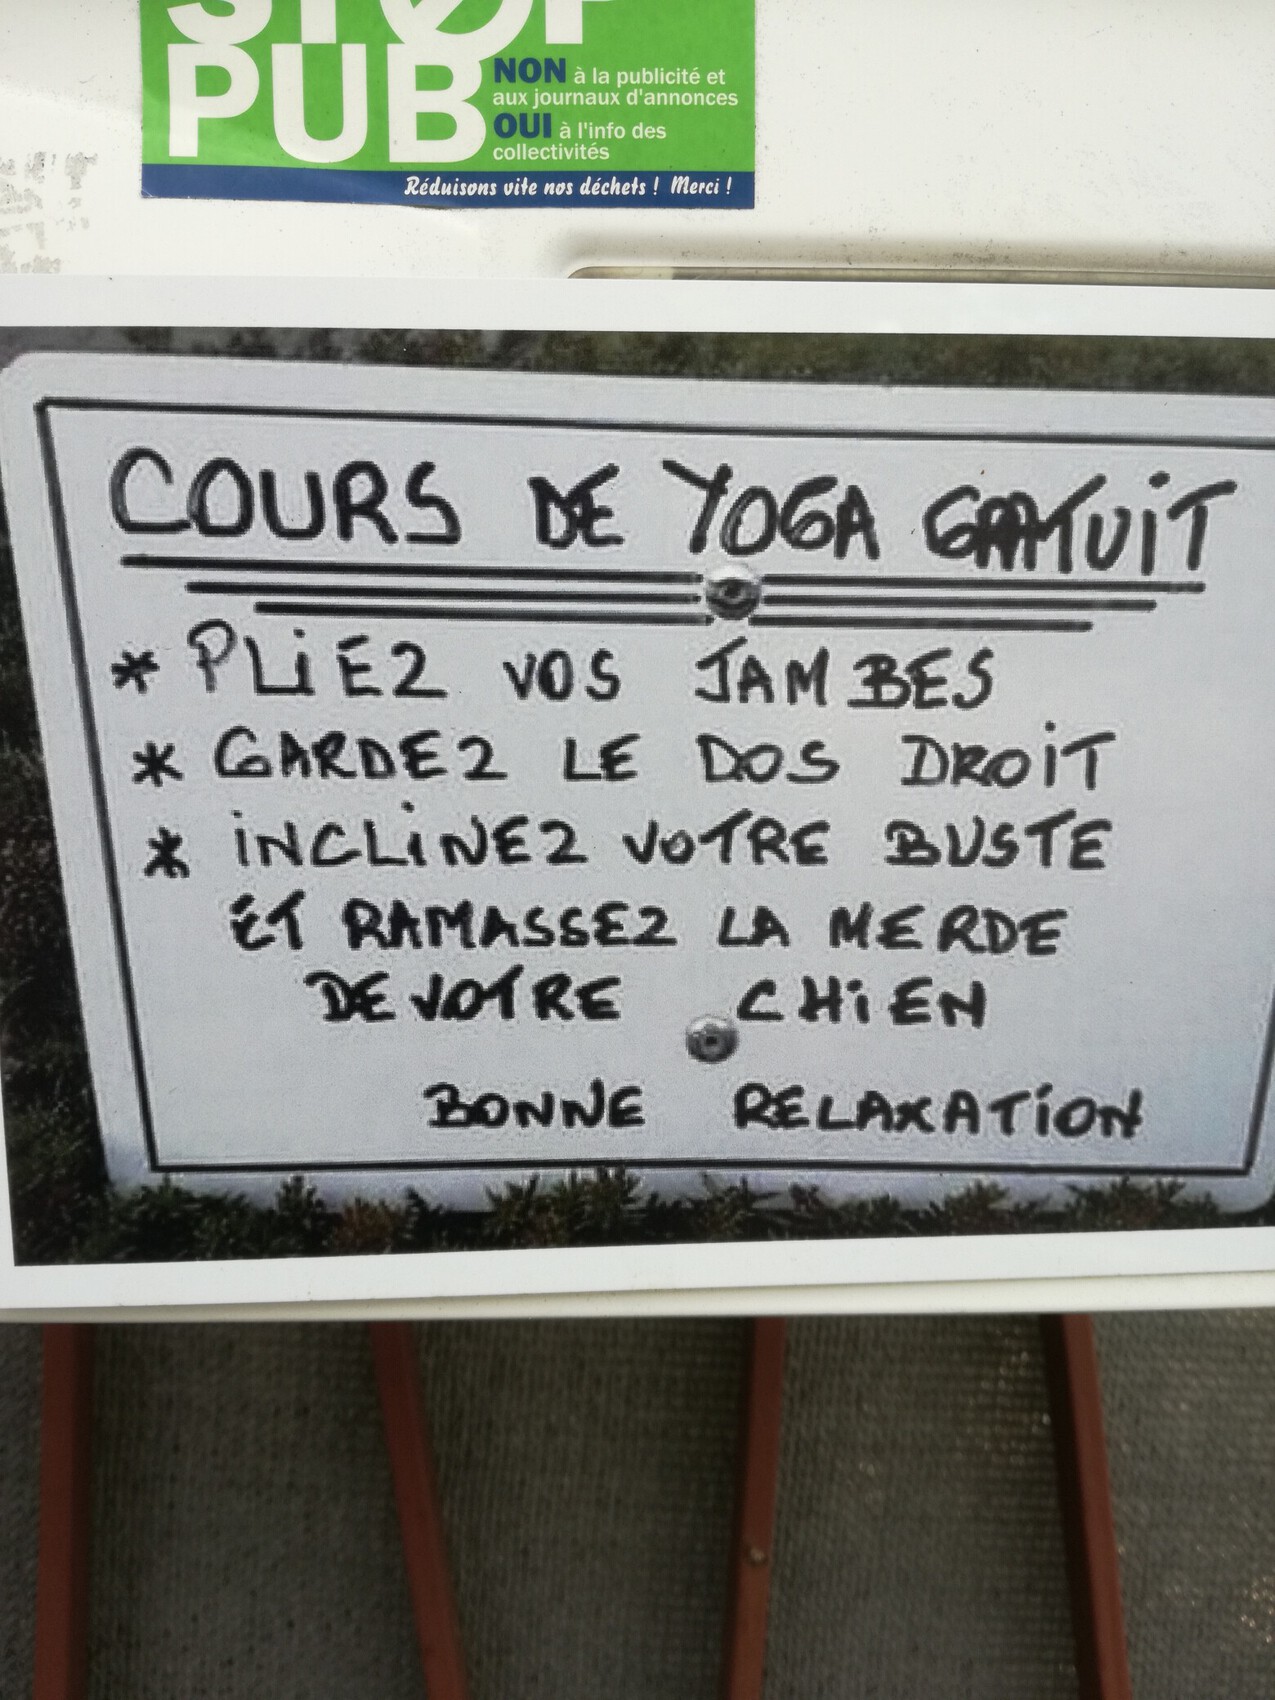 STOP
PUB
NON à la publicité et
aux journaux d'annonces
OUI à l'info des
collectivités
Réduisons vite nos déchets ! Merci !
COURS DE YOGA GRATUIT
* PLiEZ VOS JAMBES
* GARDEZ LE DOS DROiT
* iNCLiNEZ VOTRE BUSTE
ET RAMASSEZ LA MERDE
DE VOTRE CHiEN
BONNE RELAXATiON